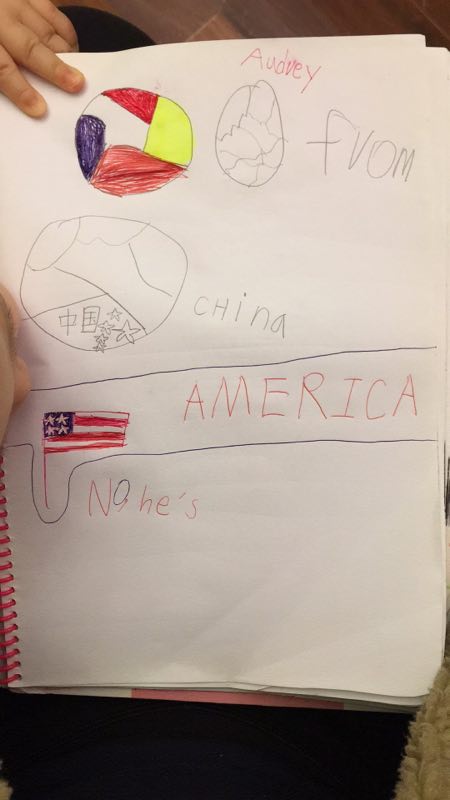 Audrey
from
中国
China
AMERICA
No, he's